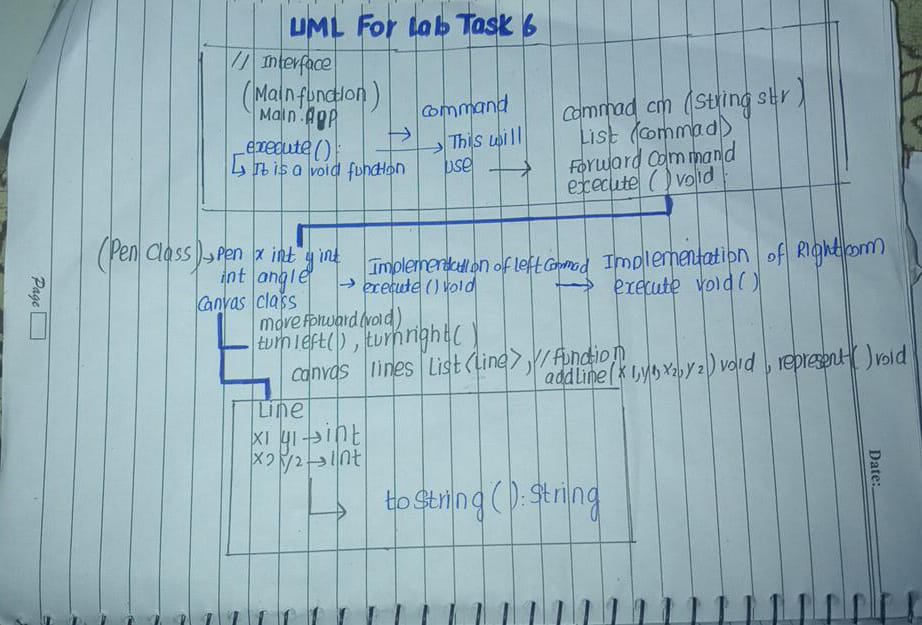 UML For Lab Task 6
// Interface
(Main function)
Main: App
execute():
↳ It is a void function
→ command
→ This will
use →
Commad cm (String str)
List (commad)
Forward Command
execute () void
(Pen Class) → Pen x int y int
int angle
→ Implementation of left Commad
execute () void
→ Implementation of Right com
execute void ()
Canvas class
moveforward (void)
turn left(), turnright()
canvas lines List <line>, // function
addLine (x1, y1, x2, y2) void, represent () void
Line
x1 y1 → int
x2 y2 → int
→ toString (): String
Page
Date: